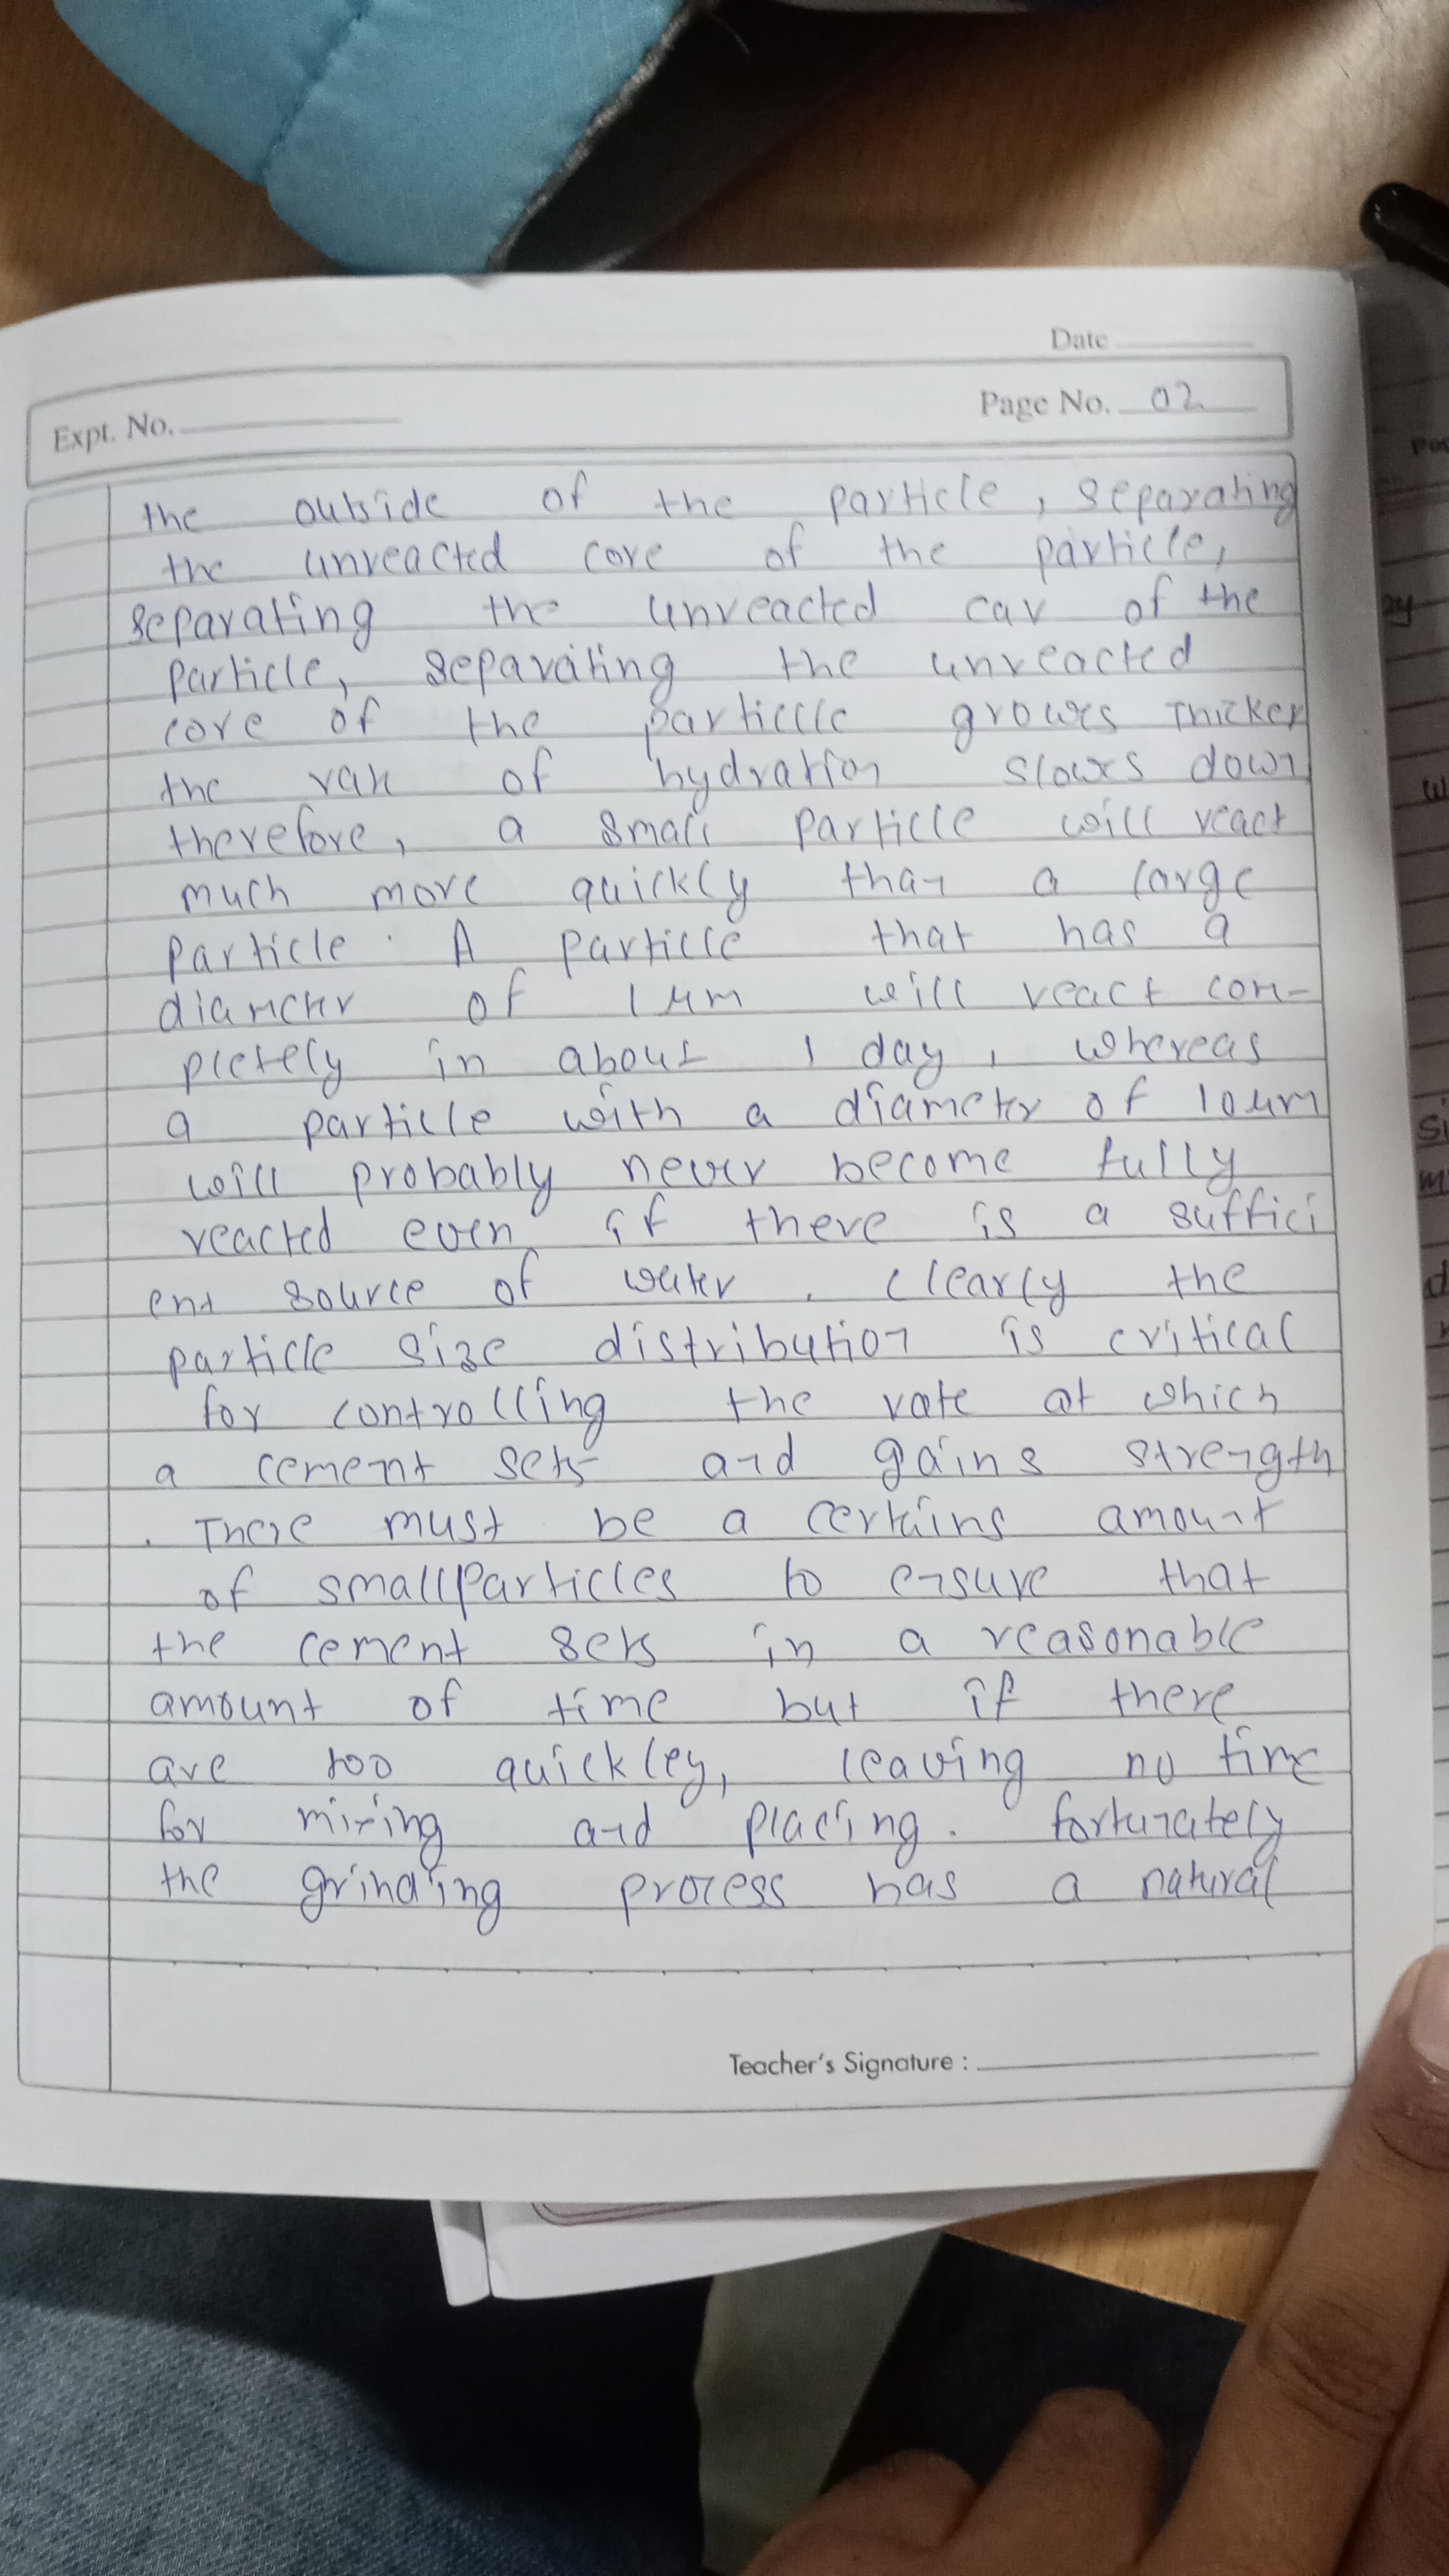 Date
Expt. No.
Page No. 02
the outside of the particle, separating
the unreacted core of the particle,
separating the unreacted cav of the
particle, separating the unreacted
core of the particcle growrs Thicker
the rate of hydration slowrs down
therefore, a small particle will react
much more quickly than a large
particle. A particle that has a
diameter of 1 μm will react com-
pletely in about 1 day, whereas
a particle with a diameter of 10 μm
will probably never become fully
reacted even if there is a suffici
ent source of water. Clearly the
particle size distribution is critical
for controlling the rate at which
a cement sets and gains strength
. There must be a certains amount
of smallparticles to ensure that
the cement sets in a reasonable
amount of time but if there
are too quickley, leaving no time
for mixing and placing. fortunately
the grinding process has a natural
Teacher's Signature :